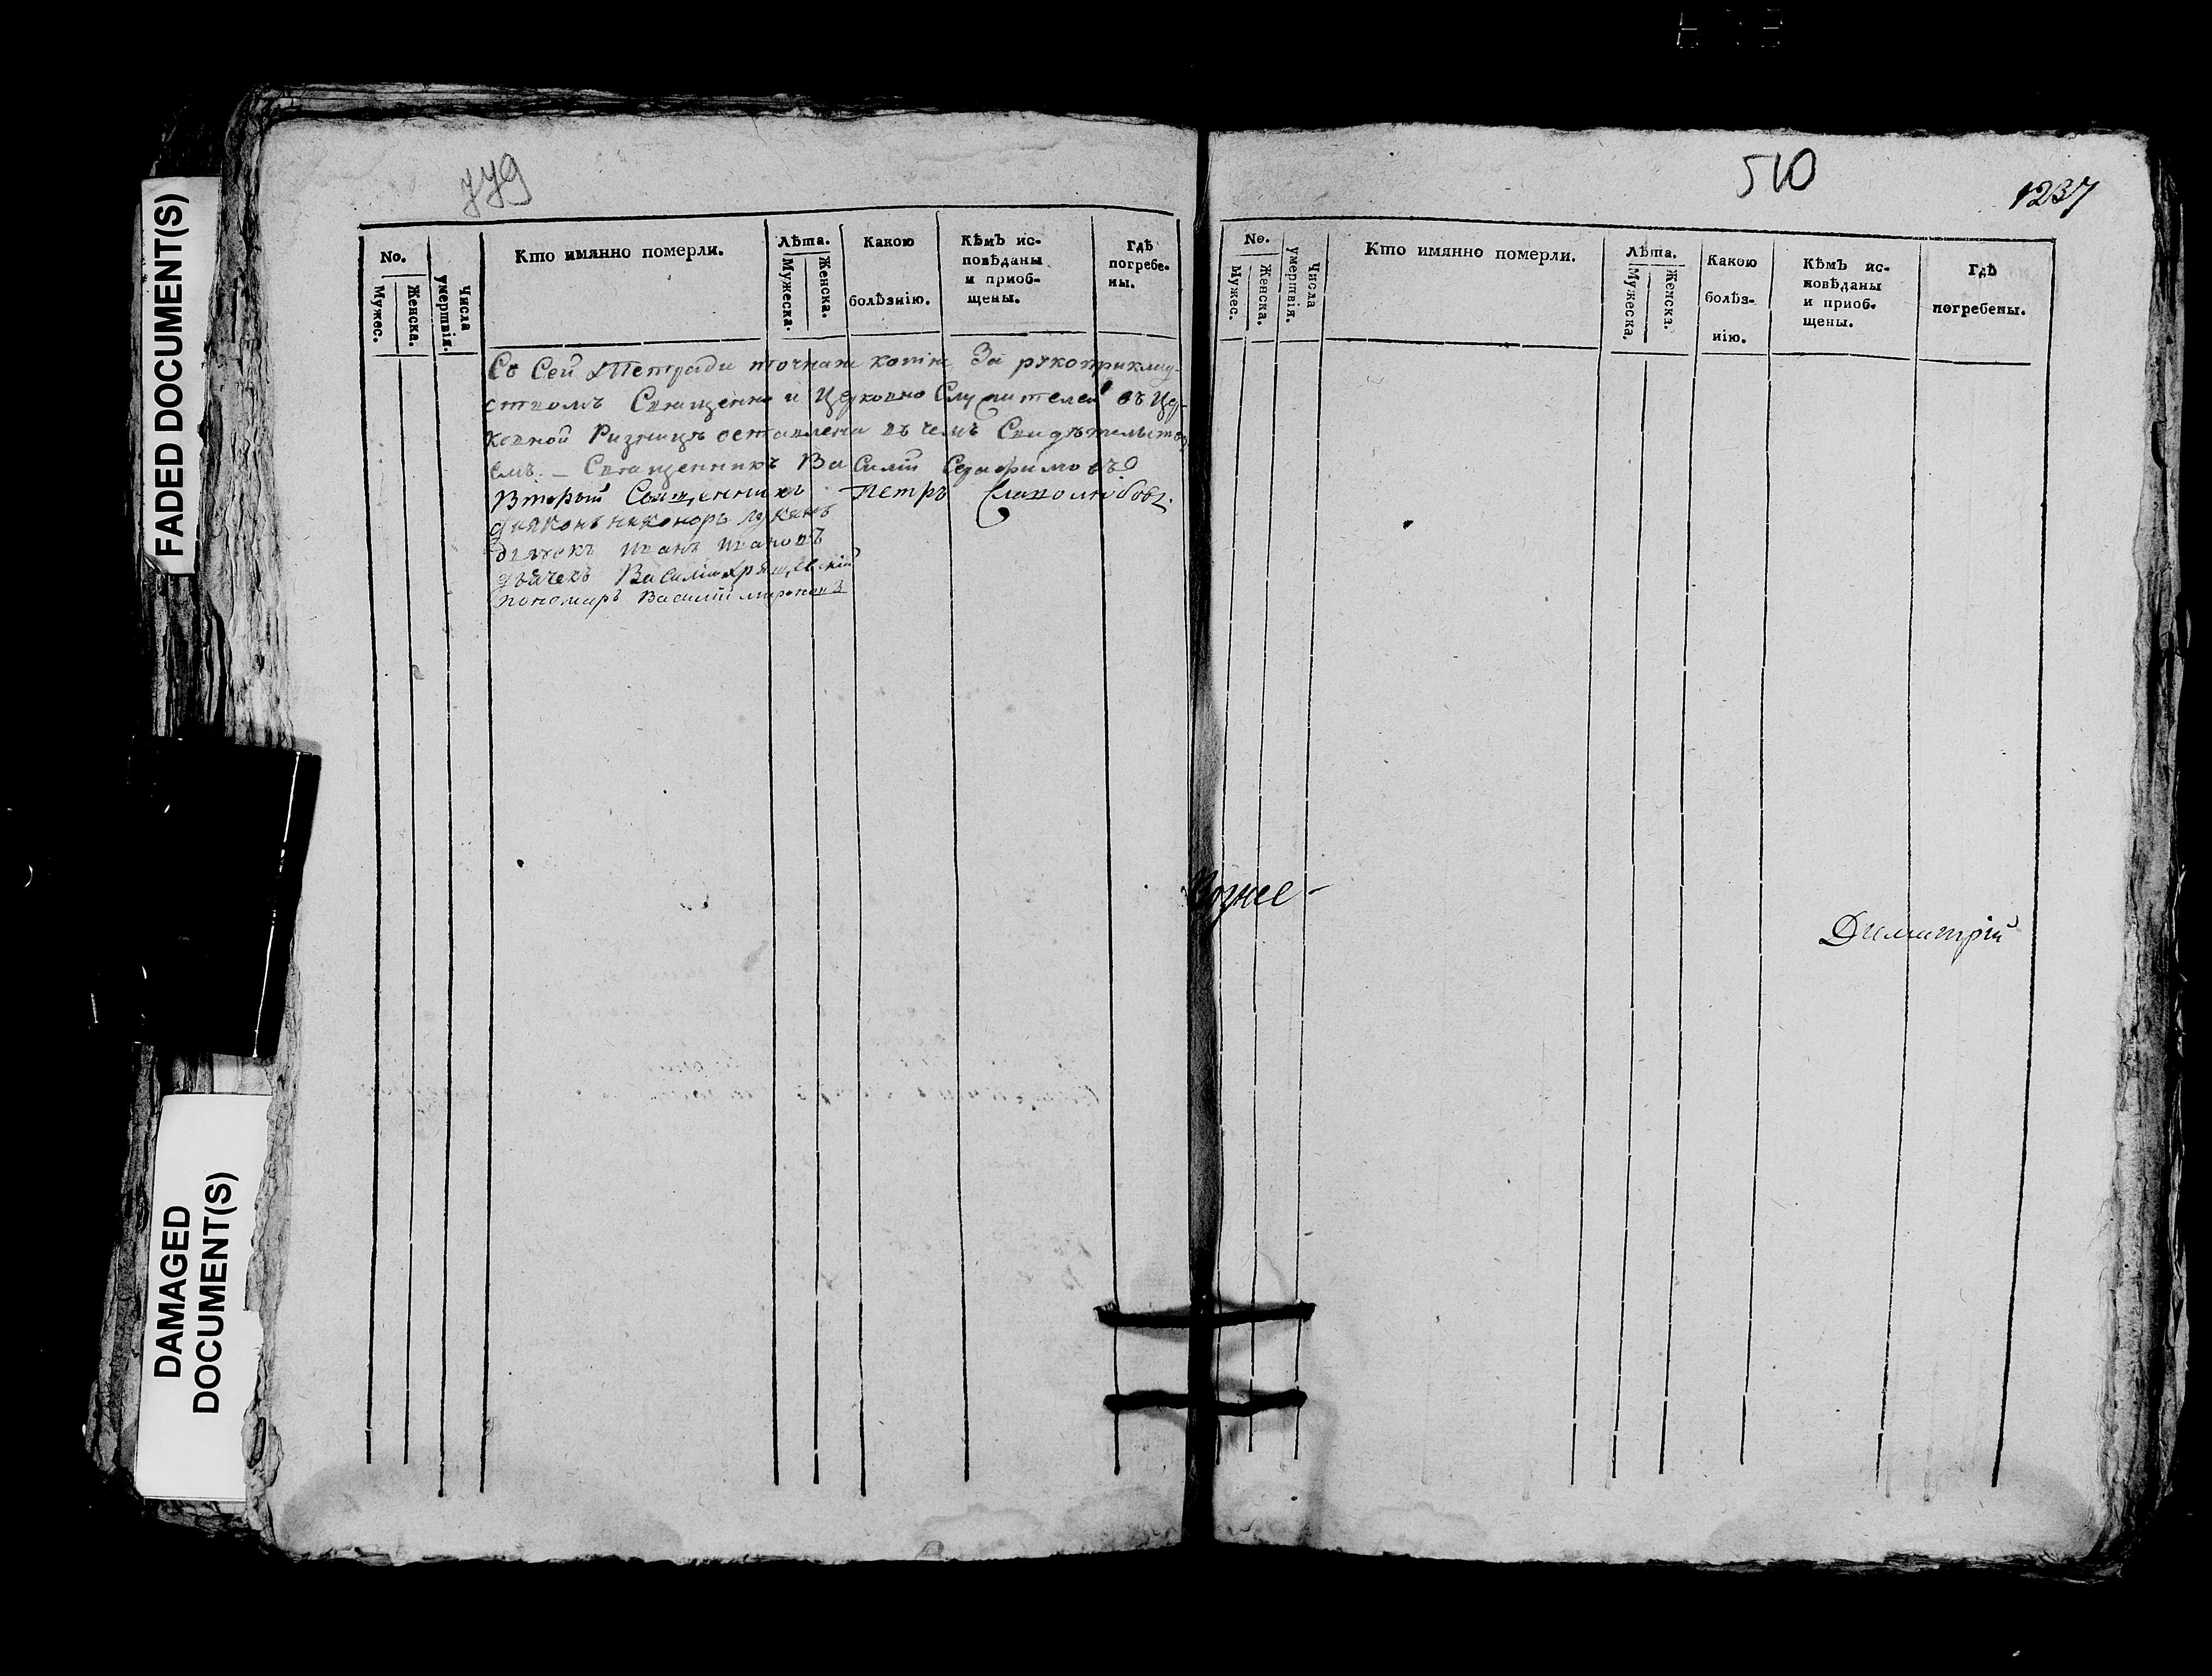 FADED DOCUMENT(S)
DAMAGED
DOCUMENT(S)
No.
Мужес.
Женска.
Числа
умертвія.
Кто имянно померли.
Лѣта.
Мужеска.
Женска.
Какою
болѣзнію.
Кѣмъ ис-
повѣданы
и приоб-
щены.
Гдѣ
погребе-
ны.
Со Сей Тетради точная копія За рукоприклад-
ствомъ Священно и Церковно Служителей въ Цер-
ковной Ризницѣ оставлена въ чемъ Свидѣтельству
емъ. – Священникъ Василій Серафимовъ
Вторый Священникъ Петръ
диаконъ никоноръ лукинъ
дьячокъ Иванъ Ивановъ
дьячекъ Василій
пономарь Василій мироновъ
510
1237
No.
Мужес.
Женска.
Числа
умертвія.
Кто имянно померли.
Лѣта.
Мужеска.
Женска.
Какою
болѣз-
нію.
Кѣмъ ис-
повѣданы
и приоб-
щены.
Гдѣ
погребены.
Вознее-
Димитрій